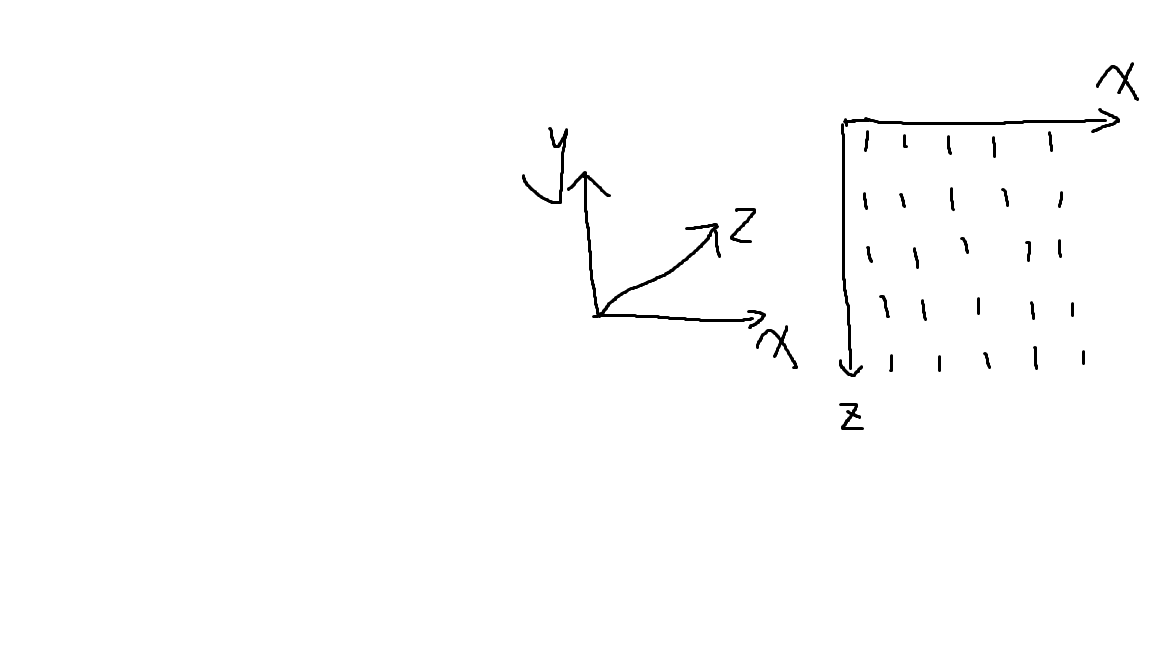 y
z
x
x
z